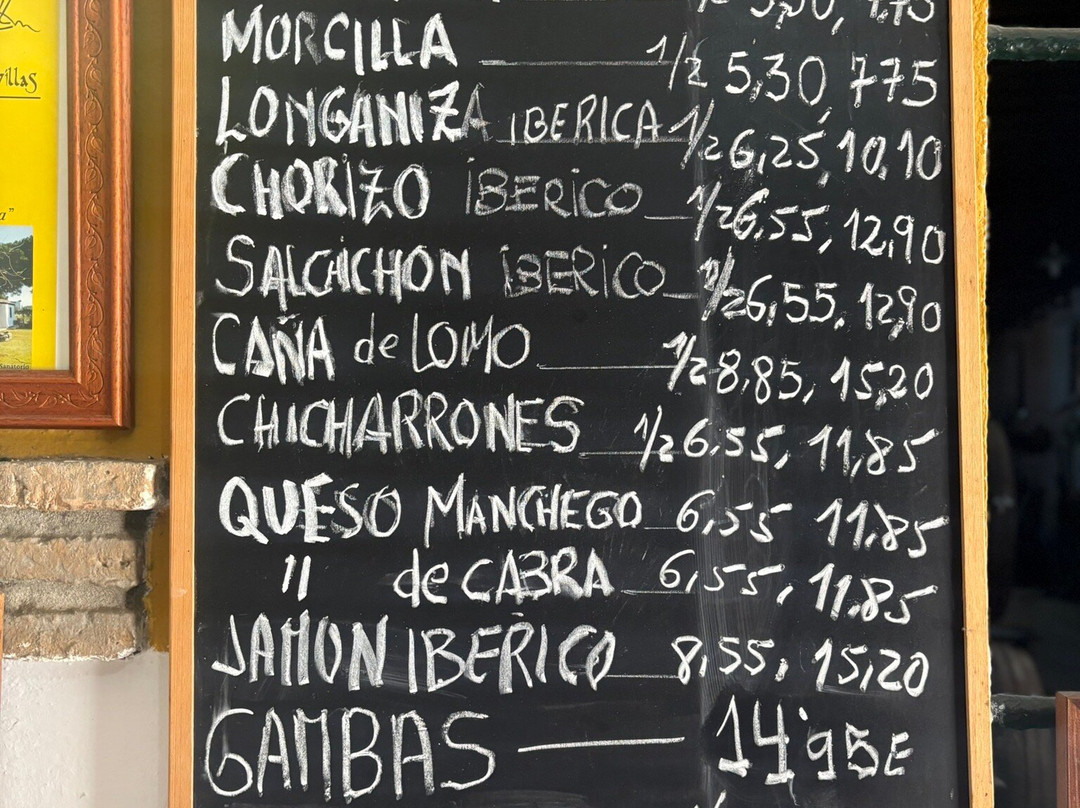 villas
a"
½ 5,30, 7.75
MORCILLA ½ 5,30, 775
LONGANIZA IBERICA ½ 6,25, 10,10
CHORIZO IBERICO ½ 6,55, 12,90
SALCHICHON IBERICO ½ 6,55, 12,90
CAÑA de LOMO ½ 8,85, 15,20
CHICHARRONES ½ 6,55, 11,85
QUESO MANCHEGO 6,55 11,85
" de CABRA 6,55, 11,85
JAMON IBERICO 8,55, 15,20
GAMBAS 14'95E